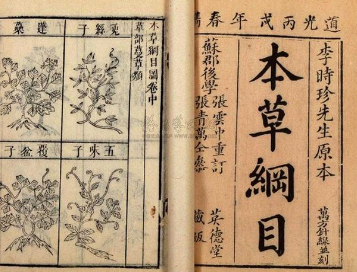 道光丙戌年春鐫
李時珍先生原本
本草綱目
萬方針線並刻
蘇郡後學
張雲中重訂
張青萬仝參
英德堂
藏板
本草綱目圖卷中
草部蔓草類
菟絲子
五味子
覆盆子